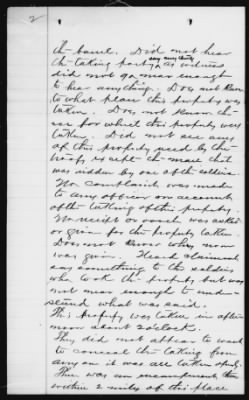 2
the same. Did not hear
the taking party say anything as witness
did not go near enough
to hear anything. Does not know
to what place this property was
taken. Does not know the
use for which the property were
taken. Did not see any
of this property used by the
troops except the mare that
was ridden by one of the soldiers.
No complaint was made
to any officer on account
of the taking of this property.
No receipt or vouch was asked
or given for the property taken.
Does not know why none
was given. Heard claimant
say something to the soldiers
who took the property but was
not near enough to under-
stand what was said.
This property was taken in after-
noon about 2 o'clock.
They did not appear to want
to conceal the taking from
any on it was all taken openly.
There was an encampment then
within 2 miles of this place